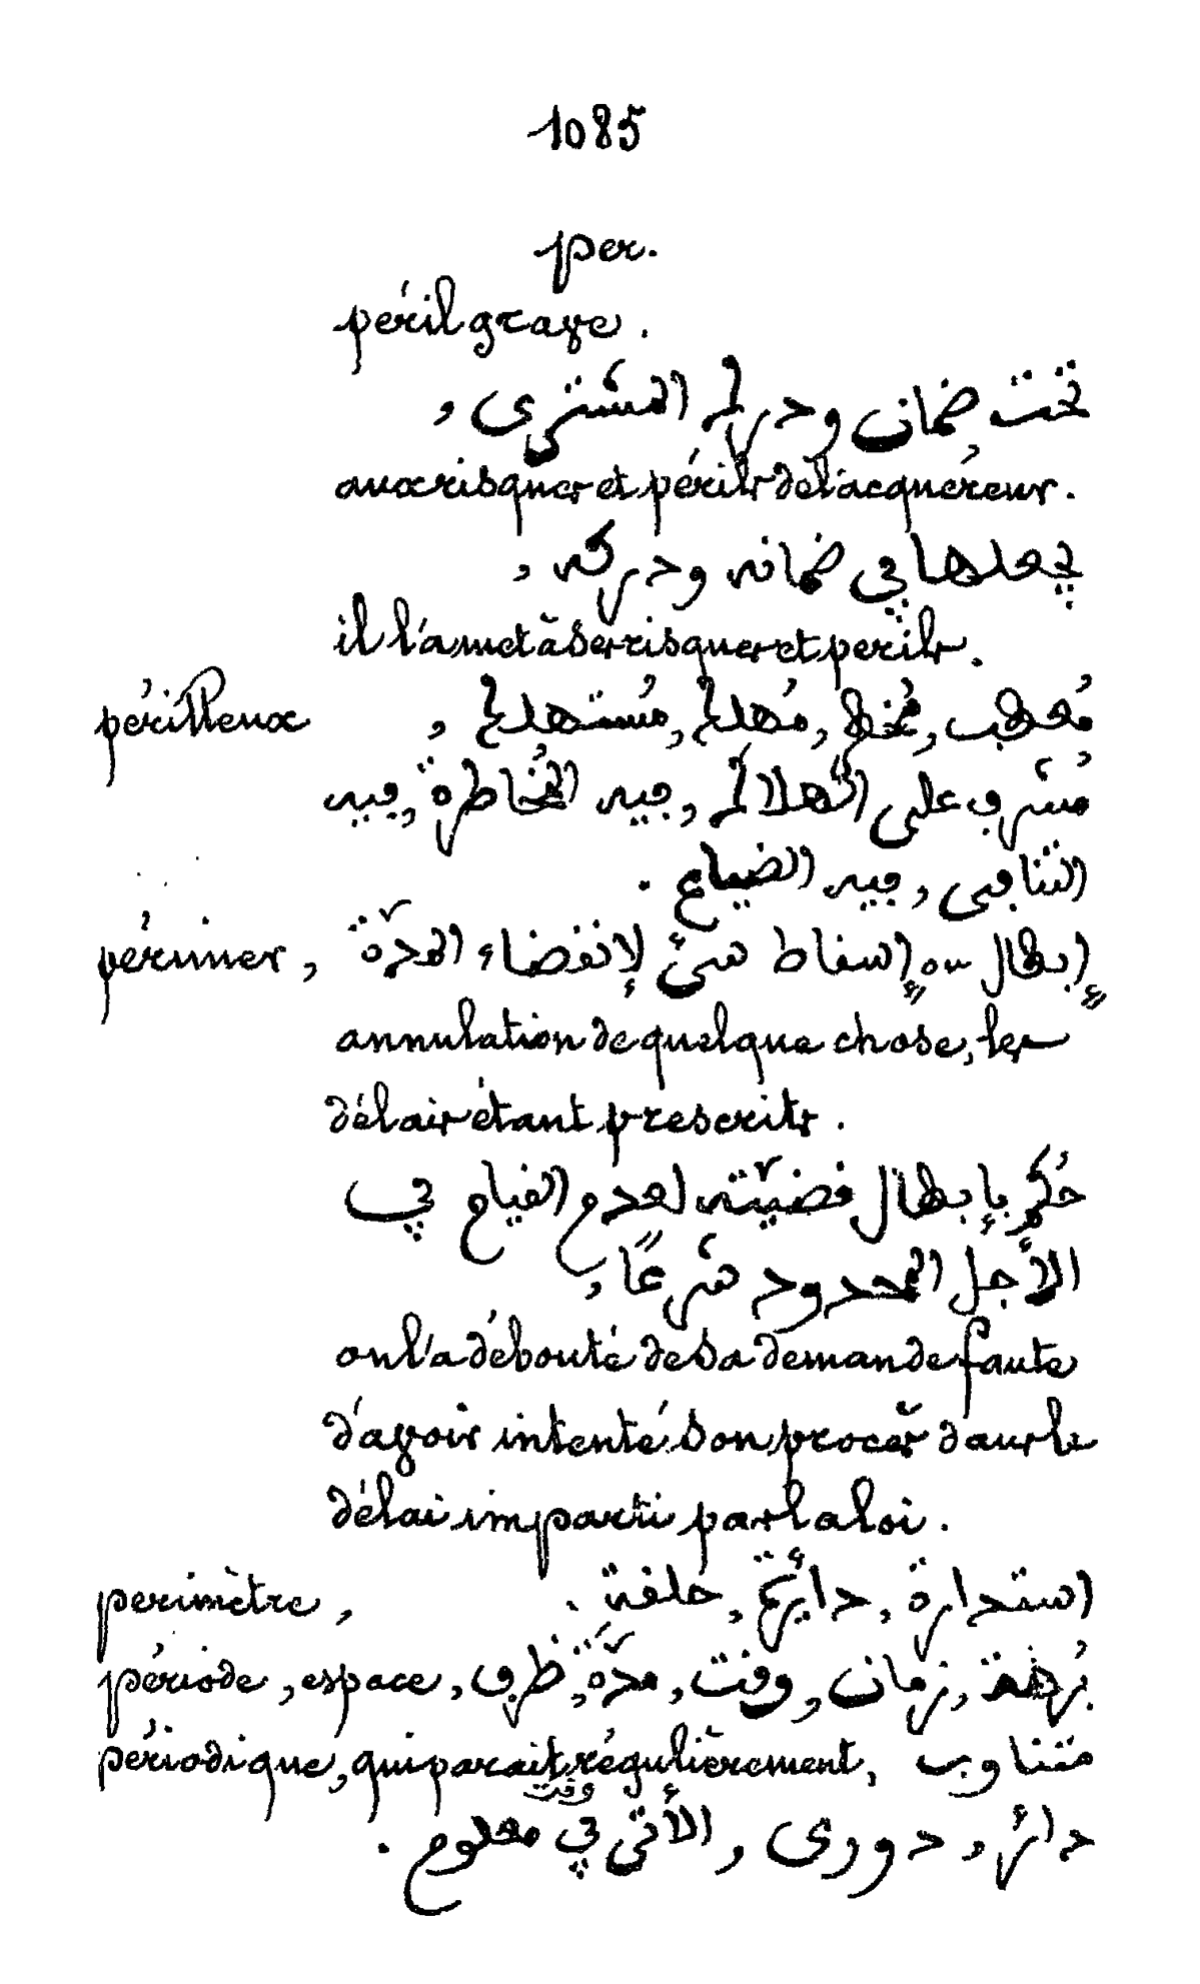 1085
per.
péril grave.
تحت ضمان ودرك المشترى,
aux risques et périls de l'acquéreur.
يجعلها في ضمانه ودركه,
il l'a met à ses risques et perils.
périlleux مُعطب, مُخطر, مُهلك, مُستهلك,
مُشرف على الهلاك, فيه المُخاطرة, فيه
التنافى, فيه الضياع.
périmer, إبطال ou إسقاط شئ لإنقضاء المدّة
annulation de quelque chose, les
délais étant prescrits.
حُكم بإبطال قضيّته لعدم القيام في
الأجل المحدود شرعًا,
on l'a débouté de sa demande faute
d'avoir intenté son procès dans le
délai imparti par la loi.
perimètre, استدارة, دائرة, حلقة.
période, espace, بُرهة, زمان, وقت, مدّة, ظرف
périodique, qui parait régulièrement, متناوب
دائر, دورى, الأتى في وقت معلوم.